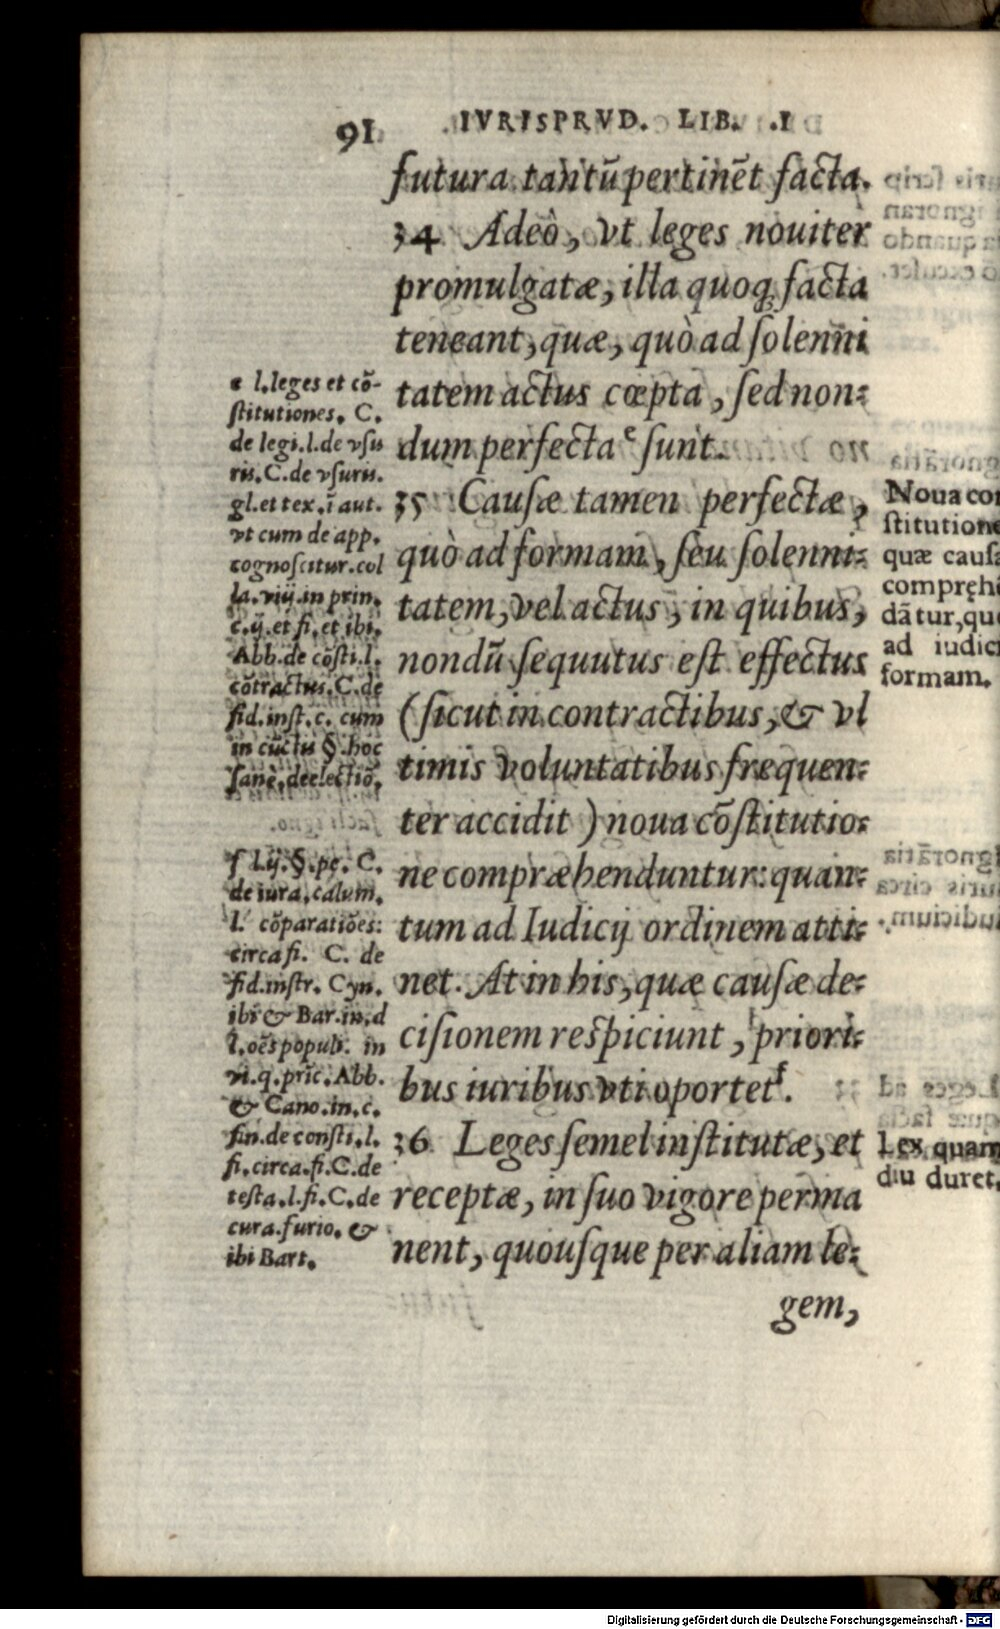 91 IVRISPRVD. LIB. I
futura tantũ pertinẽt facta.
34 Adeò, vt leges nouiter
promulgatæ, illa quoq; facta
teneant, quæ, quò ad ſolenni
tatem actus cœpta, ſed non=
dum perfecta e ſunt.
35 Cauſæ tamen perfectæ,
quò ad formam, ſeu ſolenni=
tatem, vel actus, in quibus,
nondũ ſequutus eſt effectus
(ſicut in contractibus, & vl
timis voluntatibus frequen=
ter accidit) noua cõſtitutio=
ne compræhenduntur: quan=
tum ad Iudicij ordinem atti=
net. At in his, quæ cauſæ de=
ciſionem reſpiciunt, priori=
bus iuribus vti oportet f.
36 Leges ſemel inſtitutæ, et
receptæ, in ſuo vigore perma
nent, quouſque per aliam le=
gem,
e l.leges et cõ-
ſtitutiones. C.
de legi.l.de vſu
ris.C.de vſuris.
gl.et tex.ĩ aut.
vt cum de app.
cognoſcitur.col
la.viij.in prin.
c.ij.et fi.et ibi.
Abb.de cõſti.l.
cõtractus.C.de
fid.inſt.c. cum
in cũctis §.hoc
ſanè,de electiõ.
f l.ij.§.pe. C.
de iura.calum.
l. cõparatiões:
circa fi. C. de
fid.inſtr. Cyn.
ibi & Bar.in.d
l.oẽs popub. in
vi.q.prĩc.Abb.
& Cano.in.c.
fin.de conſti.l.
fi.circa.fi.C.de
teſta.l.fi.C.de
cura.furio. &
ibi Bart.
Noua con
ſtitutione
quæ cauſæ
compręhẽ
dãtur, quo
ad iudici
formam.
Lex quam
diu duret.
Digitalisierung gefördert durch die Deutsche Forschungsgemeinschaft - DFG